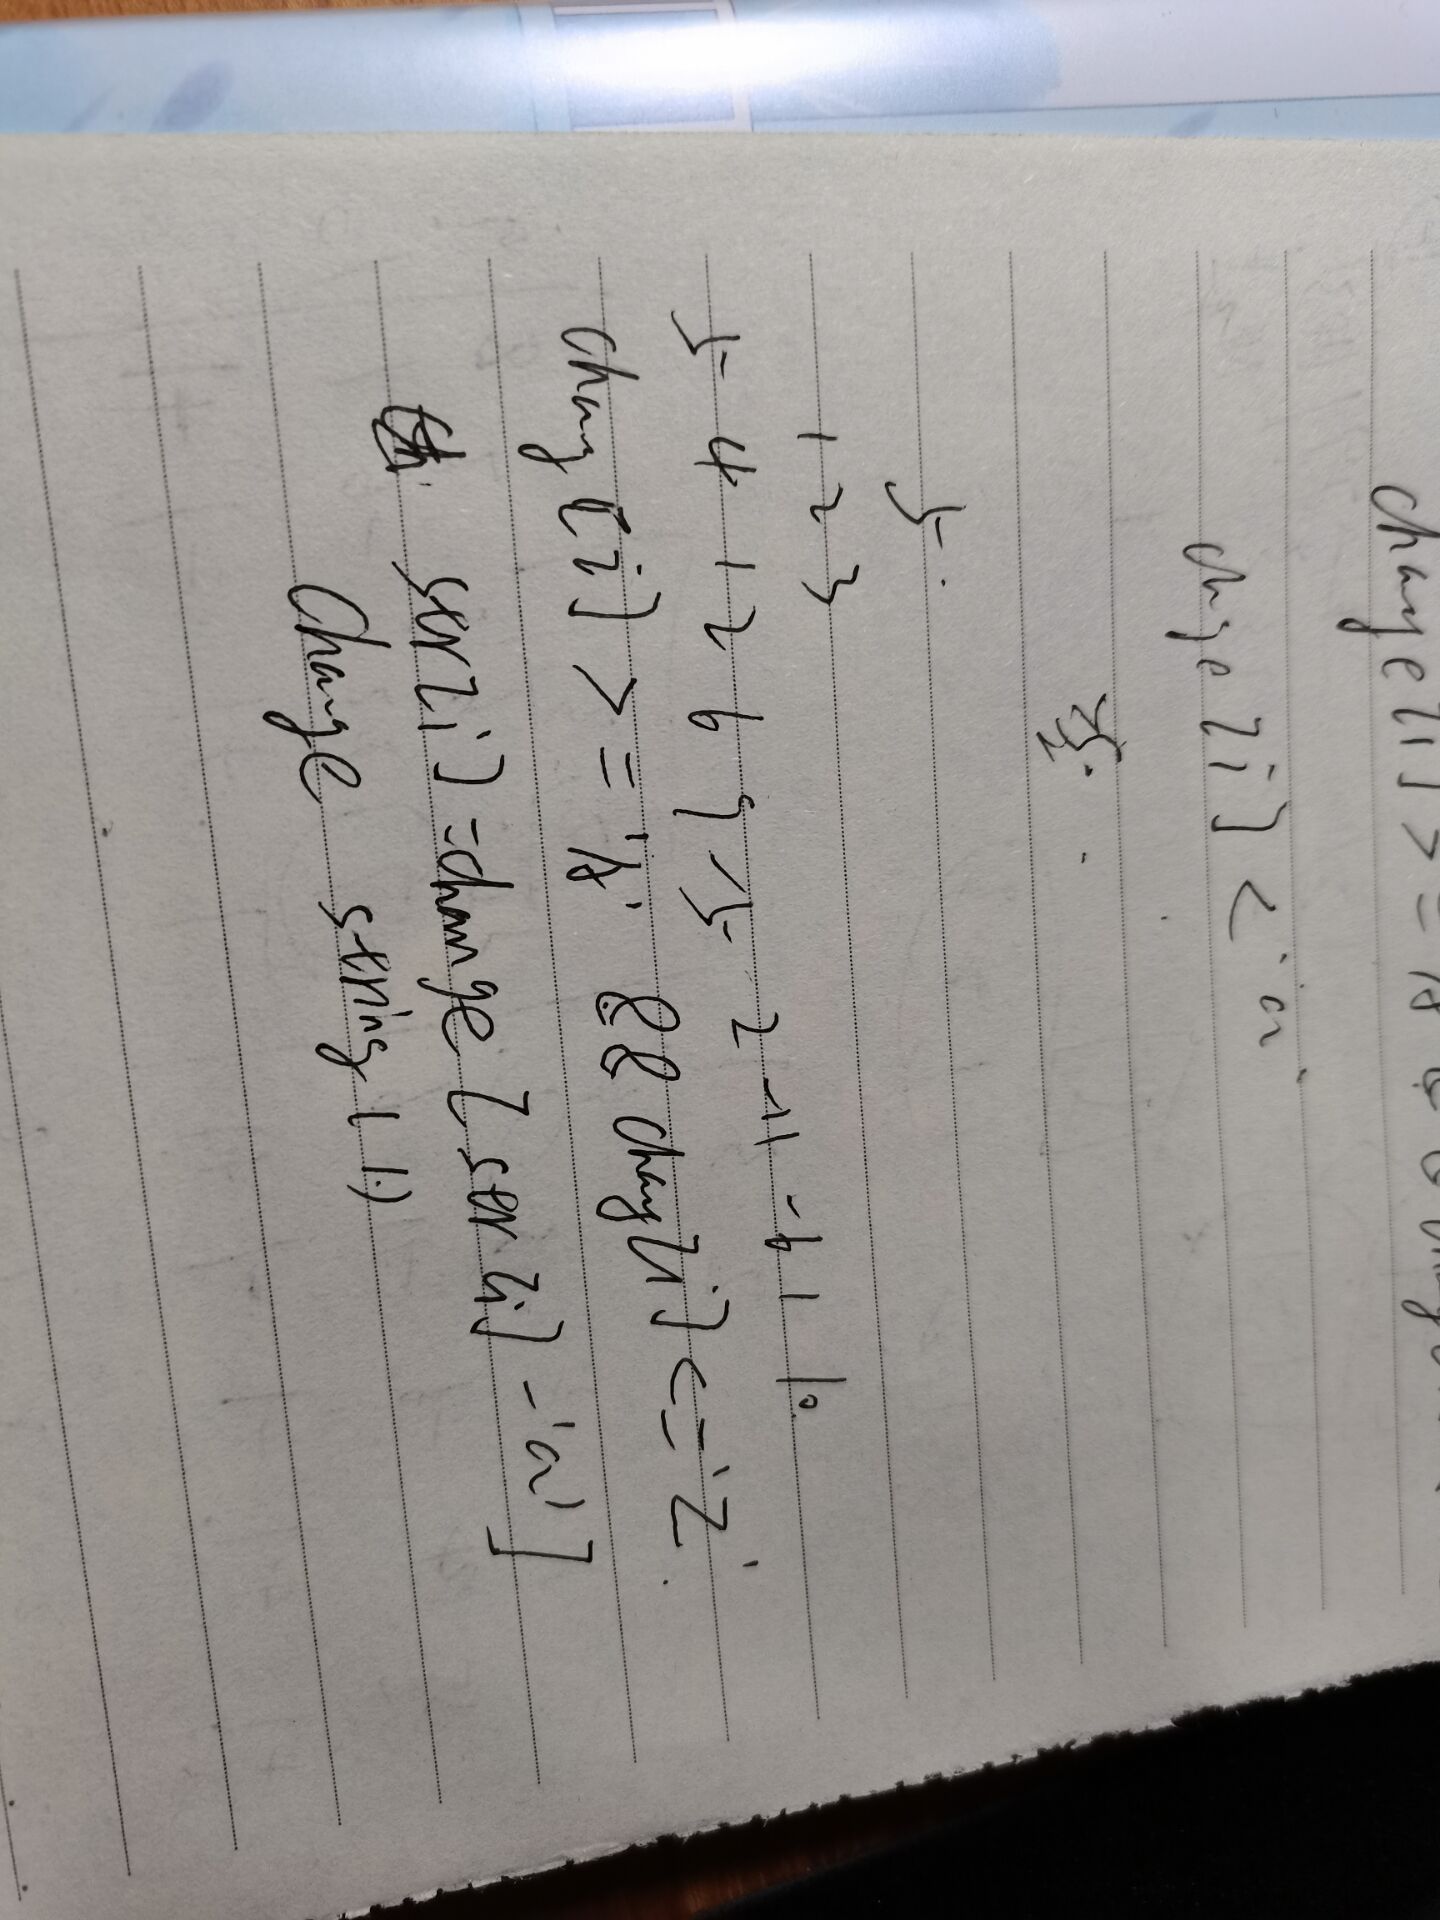 change[i] >= 'A' && chang
change[i] < 'a'
5.
1 2 3
5 4 1 2 6 9 -5 2 -11 -6 1 10
chang[i] >= 'A' && chang[i] <= 'Z'
str[i] = change[str[i] - 'a']
Change string 1 1)